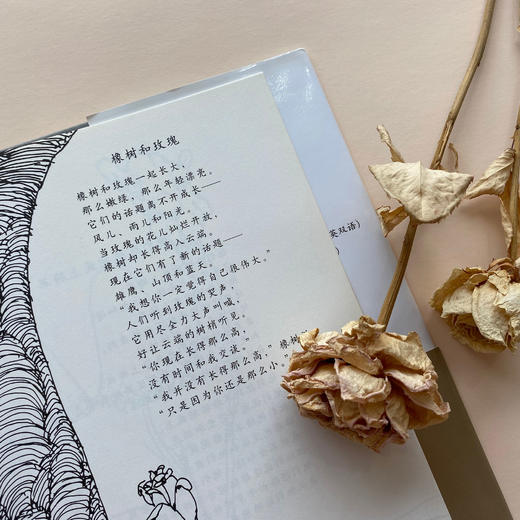 橡树和玫瑰
橡树和玫瑰一起长大，
那么嫩绿，那么年轻漂亮。
它们的话题离不开成长——
风儿、雨儿和阳光。
当玫瑰的花儿灿烂开放，
橡树却长得高入云端。
现在它们有了新的话题——
雄鹰、山顶和蓝天。
“我想你一定觉得自己很伟大。”
人们听到玫瑰的哭声，
它用尽全力大声叫喊，
好让云端的树梢听见。
“你现在长得那么高，
没有时间和我交流。”
“我并没有长得那么高，”橡树
“只是因为你还是那么小。”
英双语）
）